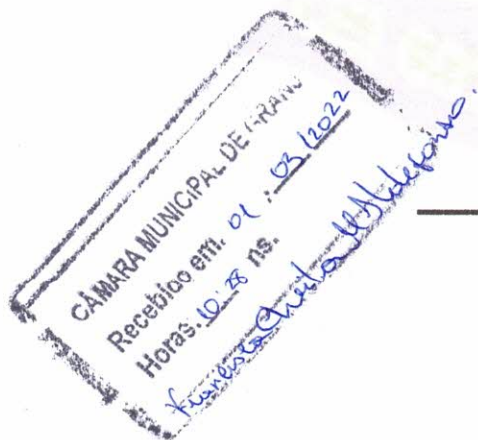 CÂMARA MUNICIPAL DE GRANJ
Recebido em: 01 / 03 / 2022
Horas: 10:28 hs.
Francisca